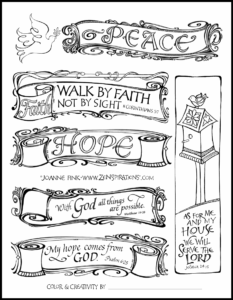 PEACE
WALK BY FAITH
NOT BY SIGHT
II CORINTHIANS 5:7
HOPE
©JOANNE FINK·WWW.ZENSPIRATIONS.COM
With GOD all things
are possible.
Matthew 19:26
My hope comes from
GOD.
Psalm 62:5
AS FOR ME
AND MY
HOUSE
WE WILL
SERVE THE
LORD
JOSHUA 24:15
COLOR & CREATIVITY BY